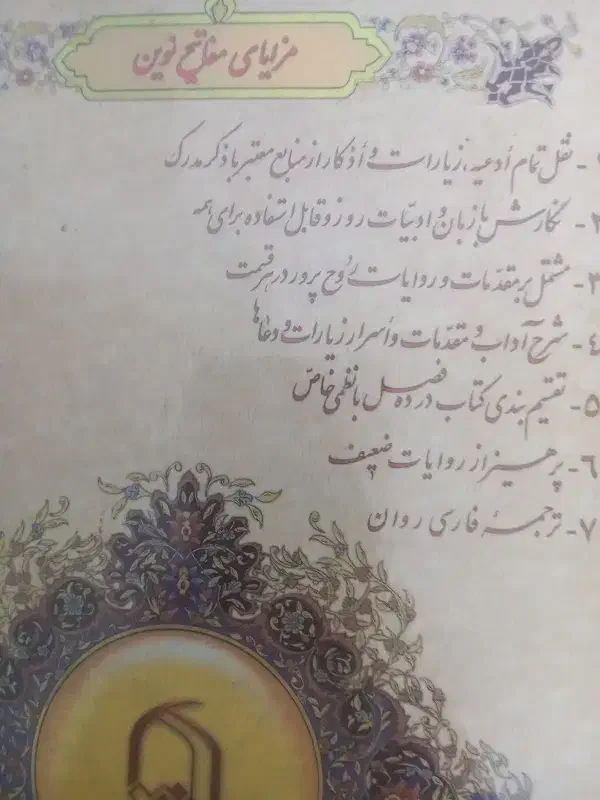 مزایای مفاتیح نوین
۱- نقل تمام أدعیه، زیارات و أذکار از منابع معتبر با ذکر مدرک
۲- نگارش با زبان و ادبیّات روز و قابل استفاده برای همه
۳- مشتمل بر مقدّمات و روایات روح پرور در هر قسمت
٤- شرح آداب و مقدّمات و أسرار زیارات و دعاها
۵- تقسیم بندی کتاب در ده فصل با نظمی خاصّ
۶- پرهیز از روایات ضعیف
۷- ترجمهٔ فارسی روان